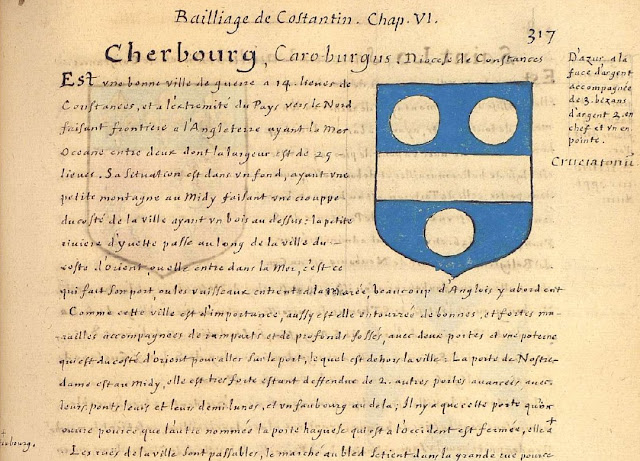 Bailliage de Costantin. Chap. VI.
317
Cherbourg, Caroburgus. Diocese de Constances
Est vne bonne ville de guerre a 14. lieues de
Constances, et a l'extremité du Pays vers le Nord
faisant frontiere a l'Angleterre ayant la Mer
Oceane entre deux dont la largeur est de 25
lieues. Sa situation est dans vn fond, ayant vne
petite montagne au Midy faisant vne crouppe
du costé de la ville ayant vn bois au dessus: la petite
riuiere d'yuette passe au long de la ville du
coste d'Orient, ou elle entre dans la Mer, c'est ce
qui fait son port, ou les vaisseaux entrent a la marée, beaucoup d'Anglois y abordent
Comme cette ville est d'importance, aussy est elle entourrée de bonnes, et fortes mu-
railles accompagnées de ramparts et de profonds fossés, auec deux portes et vne poterne
qui est du costé d'Orient pour aller sur le port, le quel est dehors la ville: La porte de Nostre
dame est au Midy, elle est tres forte estant deffendue de 2. autres portes auancées auec
leurs ponts leuis et leurs demi lunes, et vn faubourg au dela; Il ny a que cette porte qu'on
ouure pource que l'autre nommée la porte haguese qui est a l'occident est fermée, elle a
Les rues de la ville sont passables, le marché au bled se tient dans la grande rue
D'azur, a la
face d'argent
accompagnée
de 3. bezans
d'argent 2. en
chef et vn en
pointe.